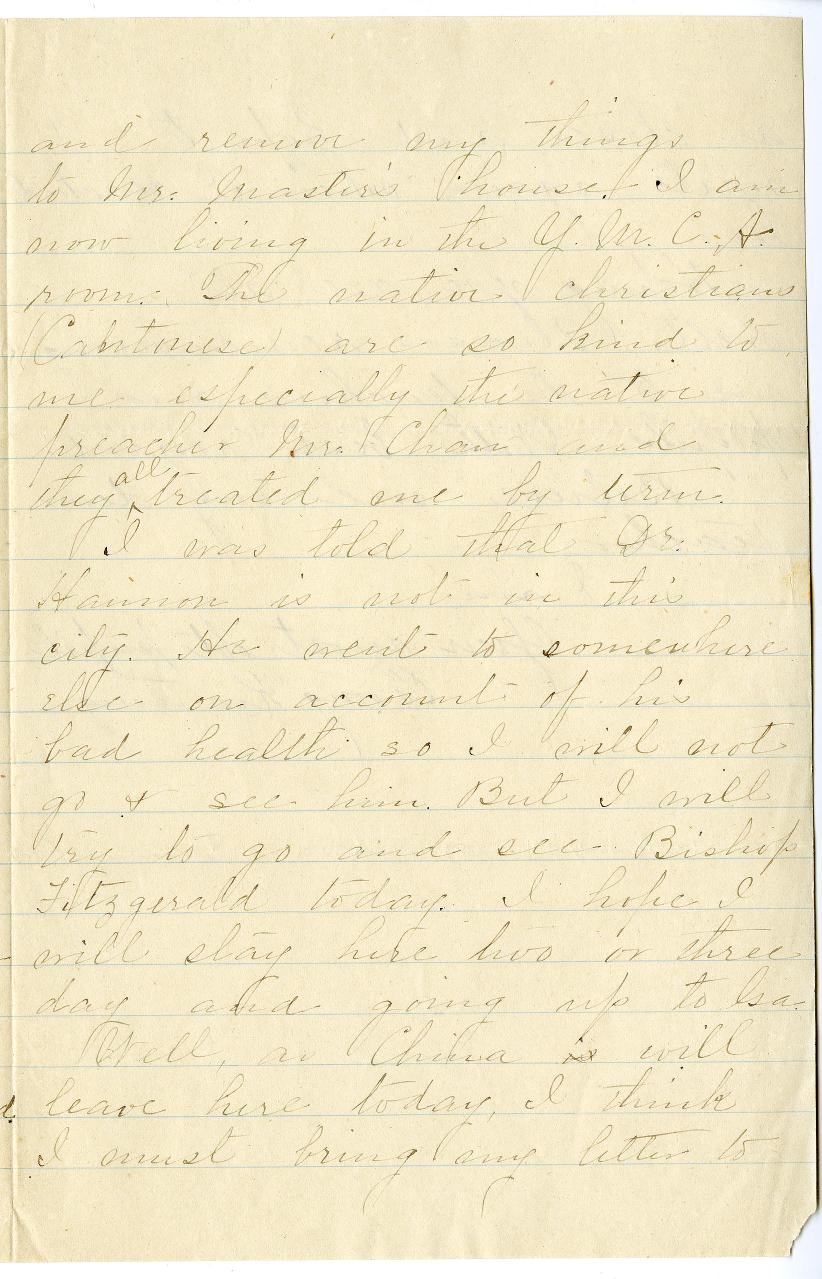 and remove my things
to Mr. Master's house. I am
now living in the Y. M. C. A.
room. The native christians
(Cantonese) are so kind to
me especially the native
preacher Mr. Chan and
they all treated me by term.
I was told that Dr.
Hannon is not in this
city. He went to somewhere
else on account of his
bad health so I will not
go & see him. But I will
try to go and see Bishop
Fitzgerald today. I hope I
will stay here two or three
day and going up to Ga.
Well, as China is will
leave here today, I think
I must bring my letter to